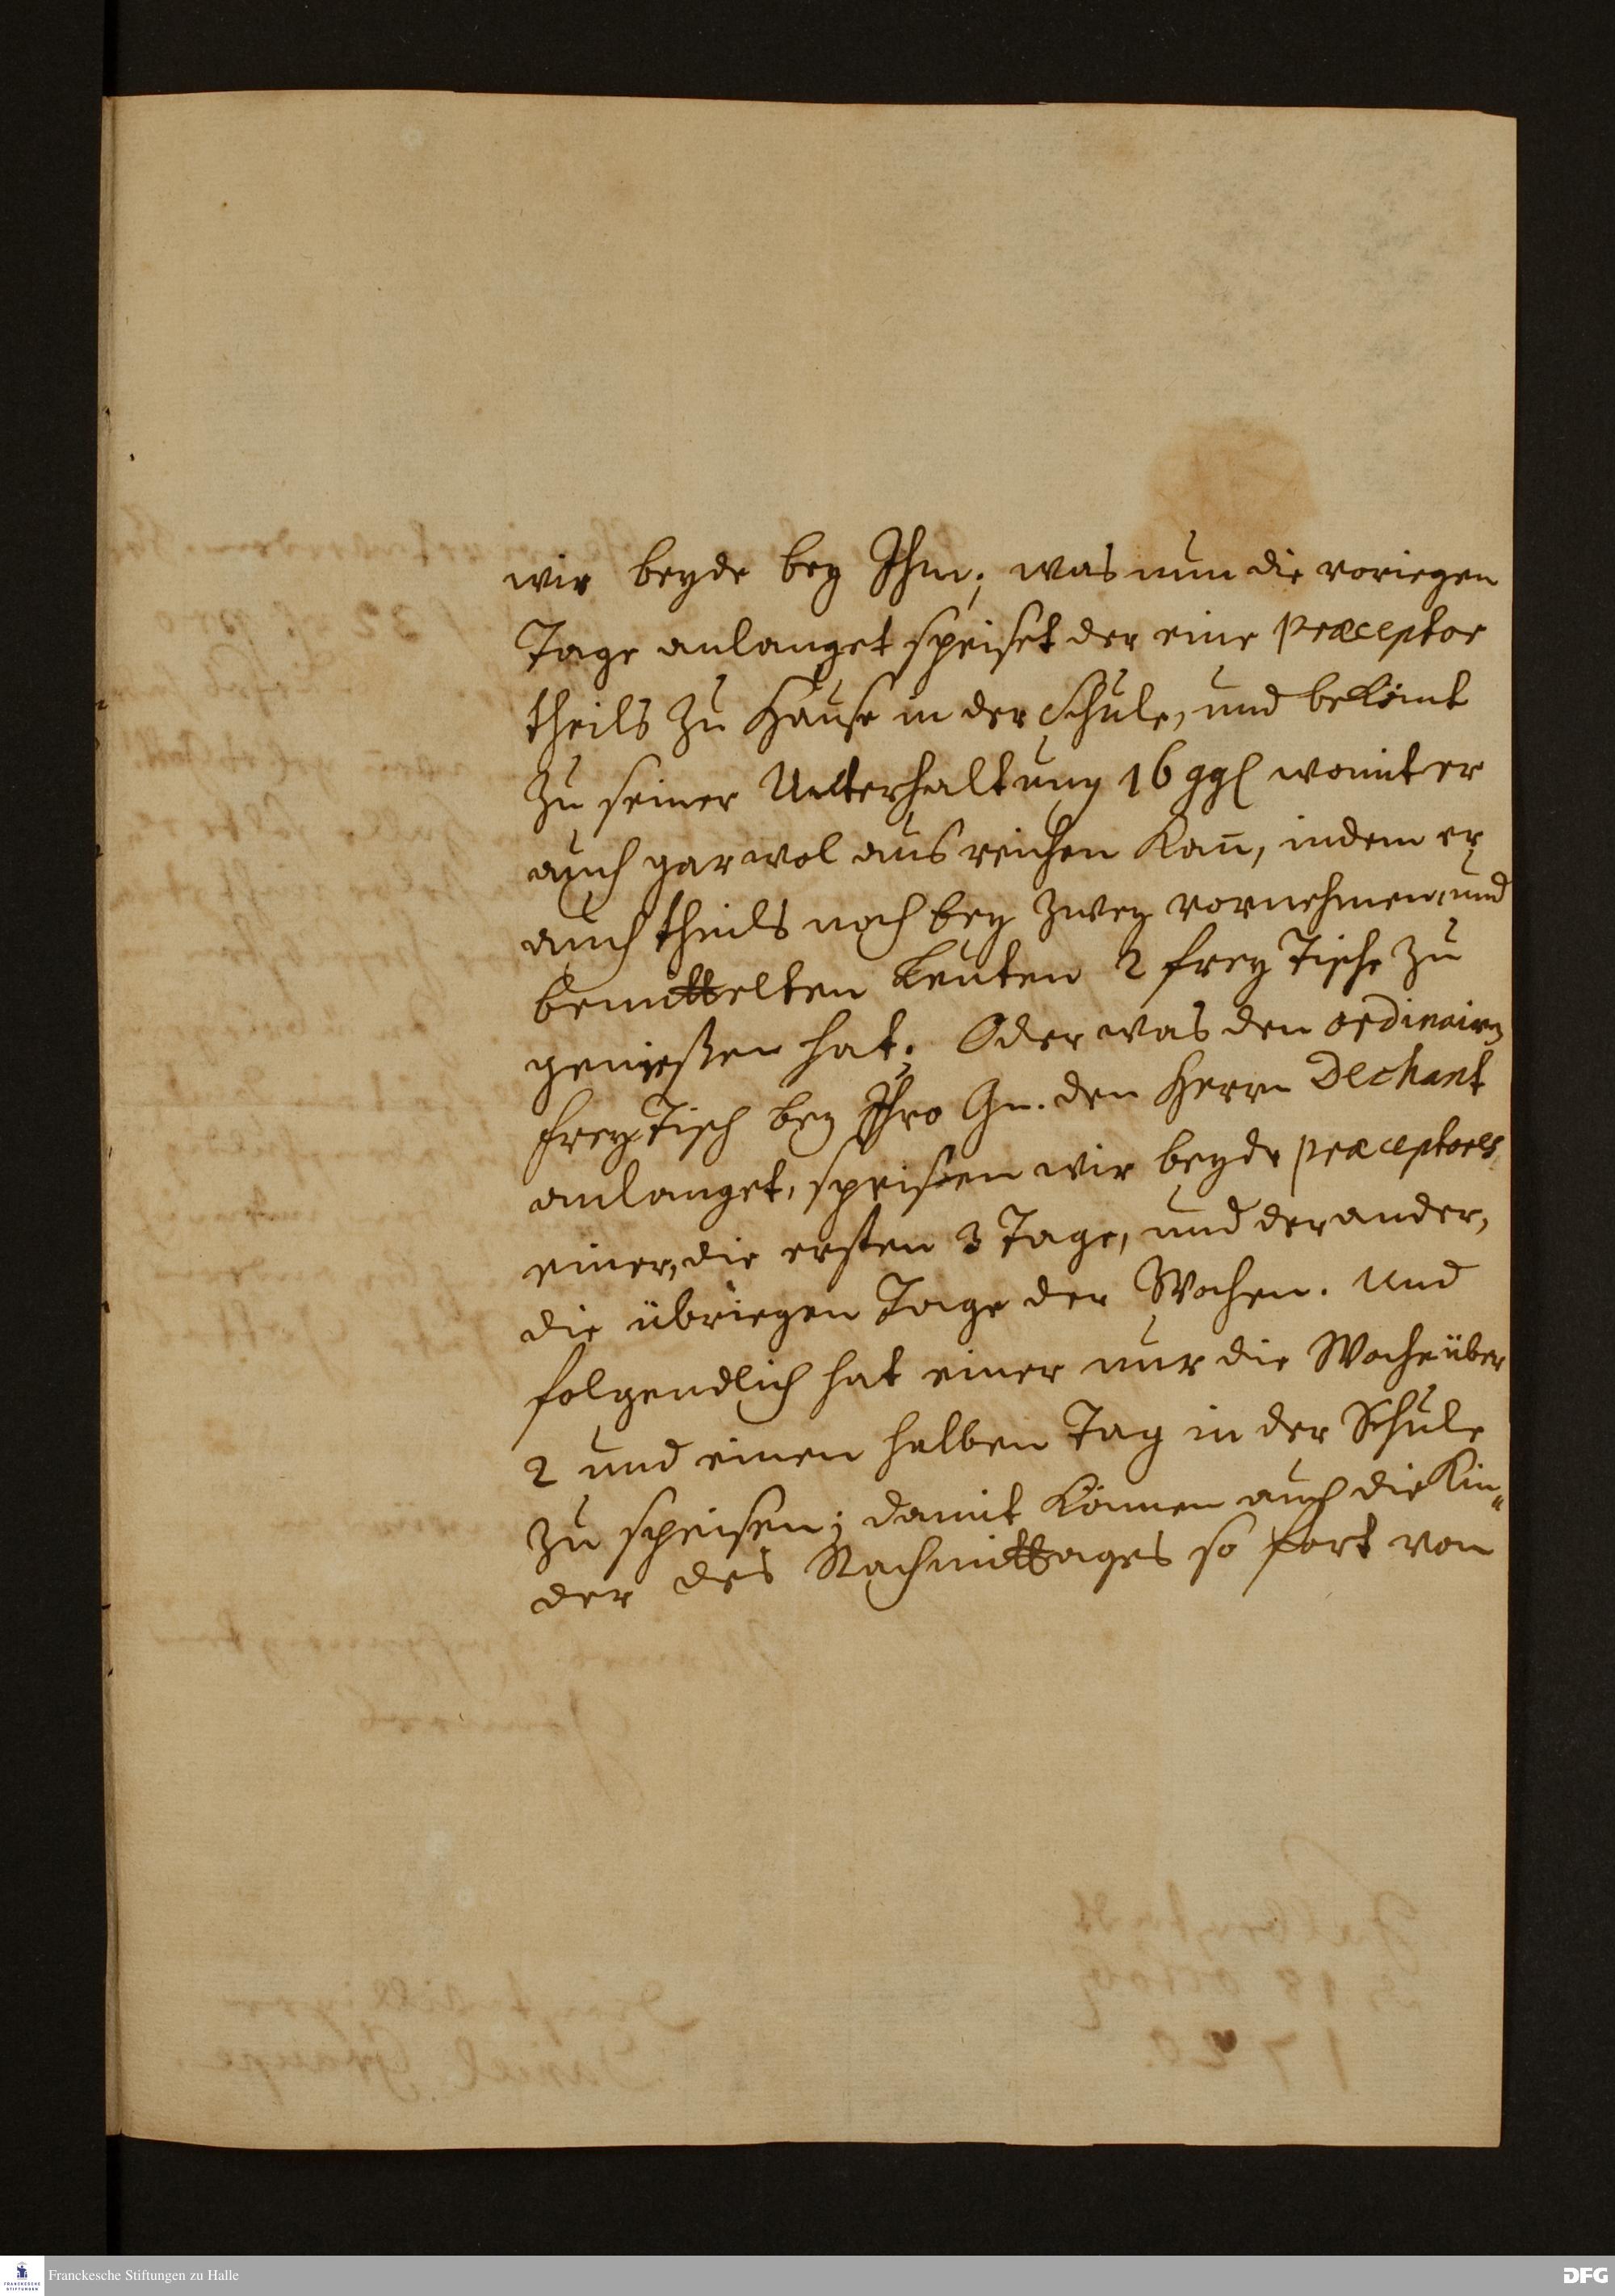 wir beyde bey Ihm; was nun die voriegen
Tage anlanget speiset der eine Præceptor
theils zu Hause in der Schule, und bekömt
zu seiner Unterhaltung 16 ggl womit er
auch gar wol aus reichen kan̅, indem er
auch theils noch bey zwey vornehmen und
bemittelten Leuten 2 frey Tische zu
genießen hat. Oder was den ordinairen
freyTisch bey Ihro Gn. den Herrn Dechant
anlanget, speisen wir beyde præceptores
einer, die ersten 3 Tage, und der ander,
die übriegen Tage der Wochen. Und
folgendlich hat einer nur die Woche über
2 und einen halben Tag in der Schule
zu speisen; damit können auch die Kin-
der des Nachmittages so fort von
Franckesche Stiftungen zu Halle
DFG